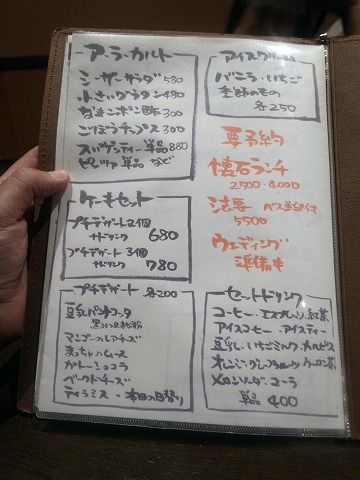 ア・ラ・カルト
シーザーサラダ 580
小さいグラタン 480
ポン酢 300
ごぼうチップス 300
スパゲッティー単品 880
ピッツァ 単品 など
ケーキセット
プチデザート2個
+ドリンク 680
プチデザート 3個
+ドリンク 780
プチデザート 各200
豆乳パンナコッタ
黒みつきなこ
マンゴーのレアチーズ
まっちゃムース
ガトーショコラ
ベークドチーズ
ティラミス・本日の日替り
アイスクリーム
バニラ・いちご
季節のもの
各250
要予約
懐石ランチ
2500・4000
法要 バス送迎付
5500
ウェディング
準備中
セットドリンク
コーヒー・エスプレッソ・紅茶
アイスコーヒー・アイスティー
豆乳・いちごミルク・カルピス
オレンジ・グレープフルーツ・ウーロン茶
メロンソーダ・コーラ
単品 400